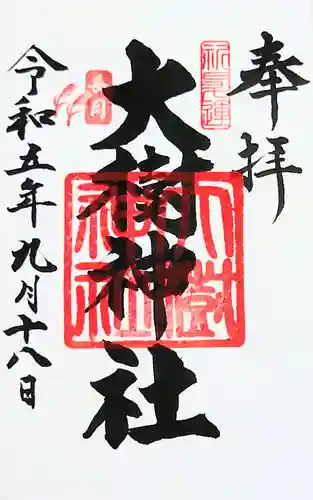 奉拝
大樹神社
令和五年九月十八日
大樹神社